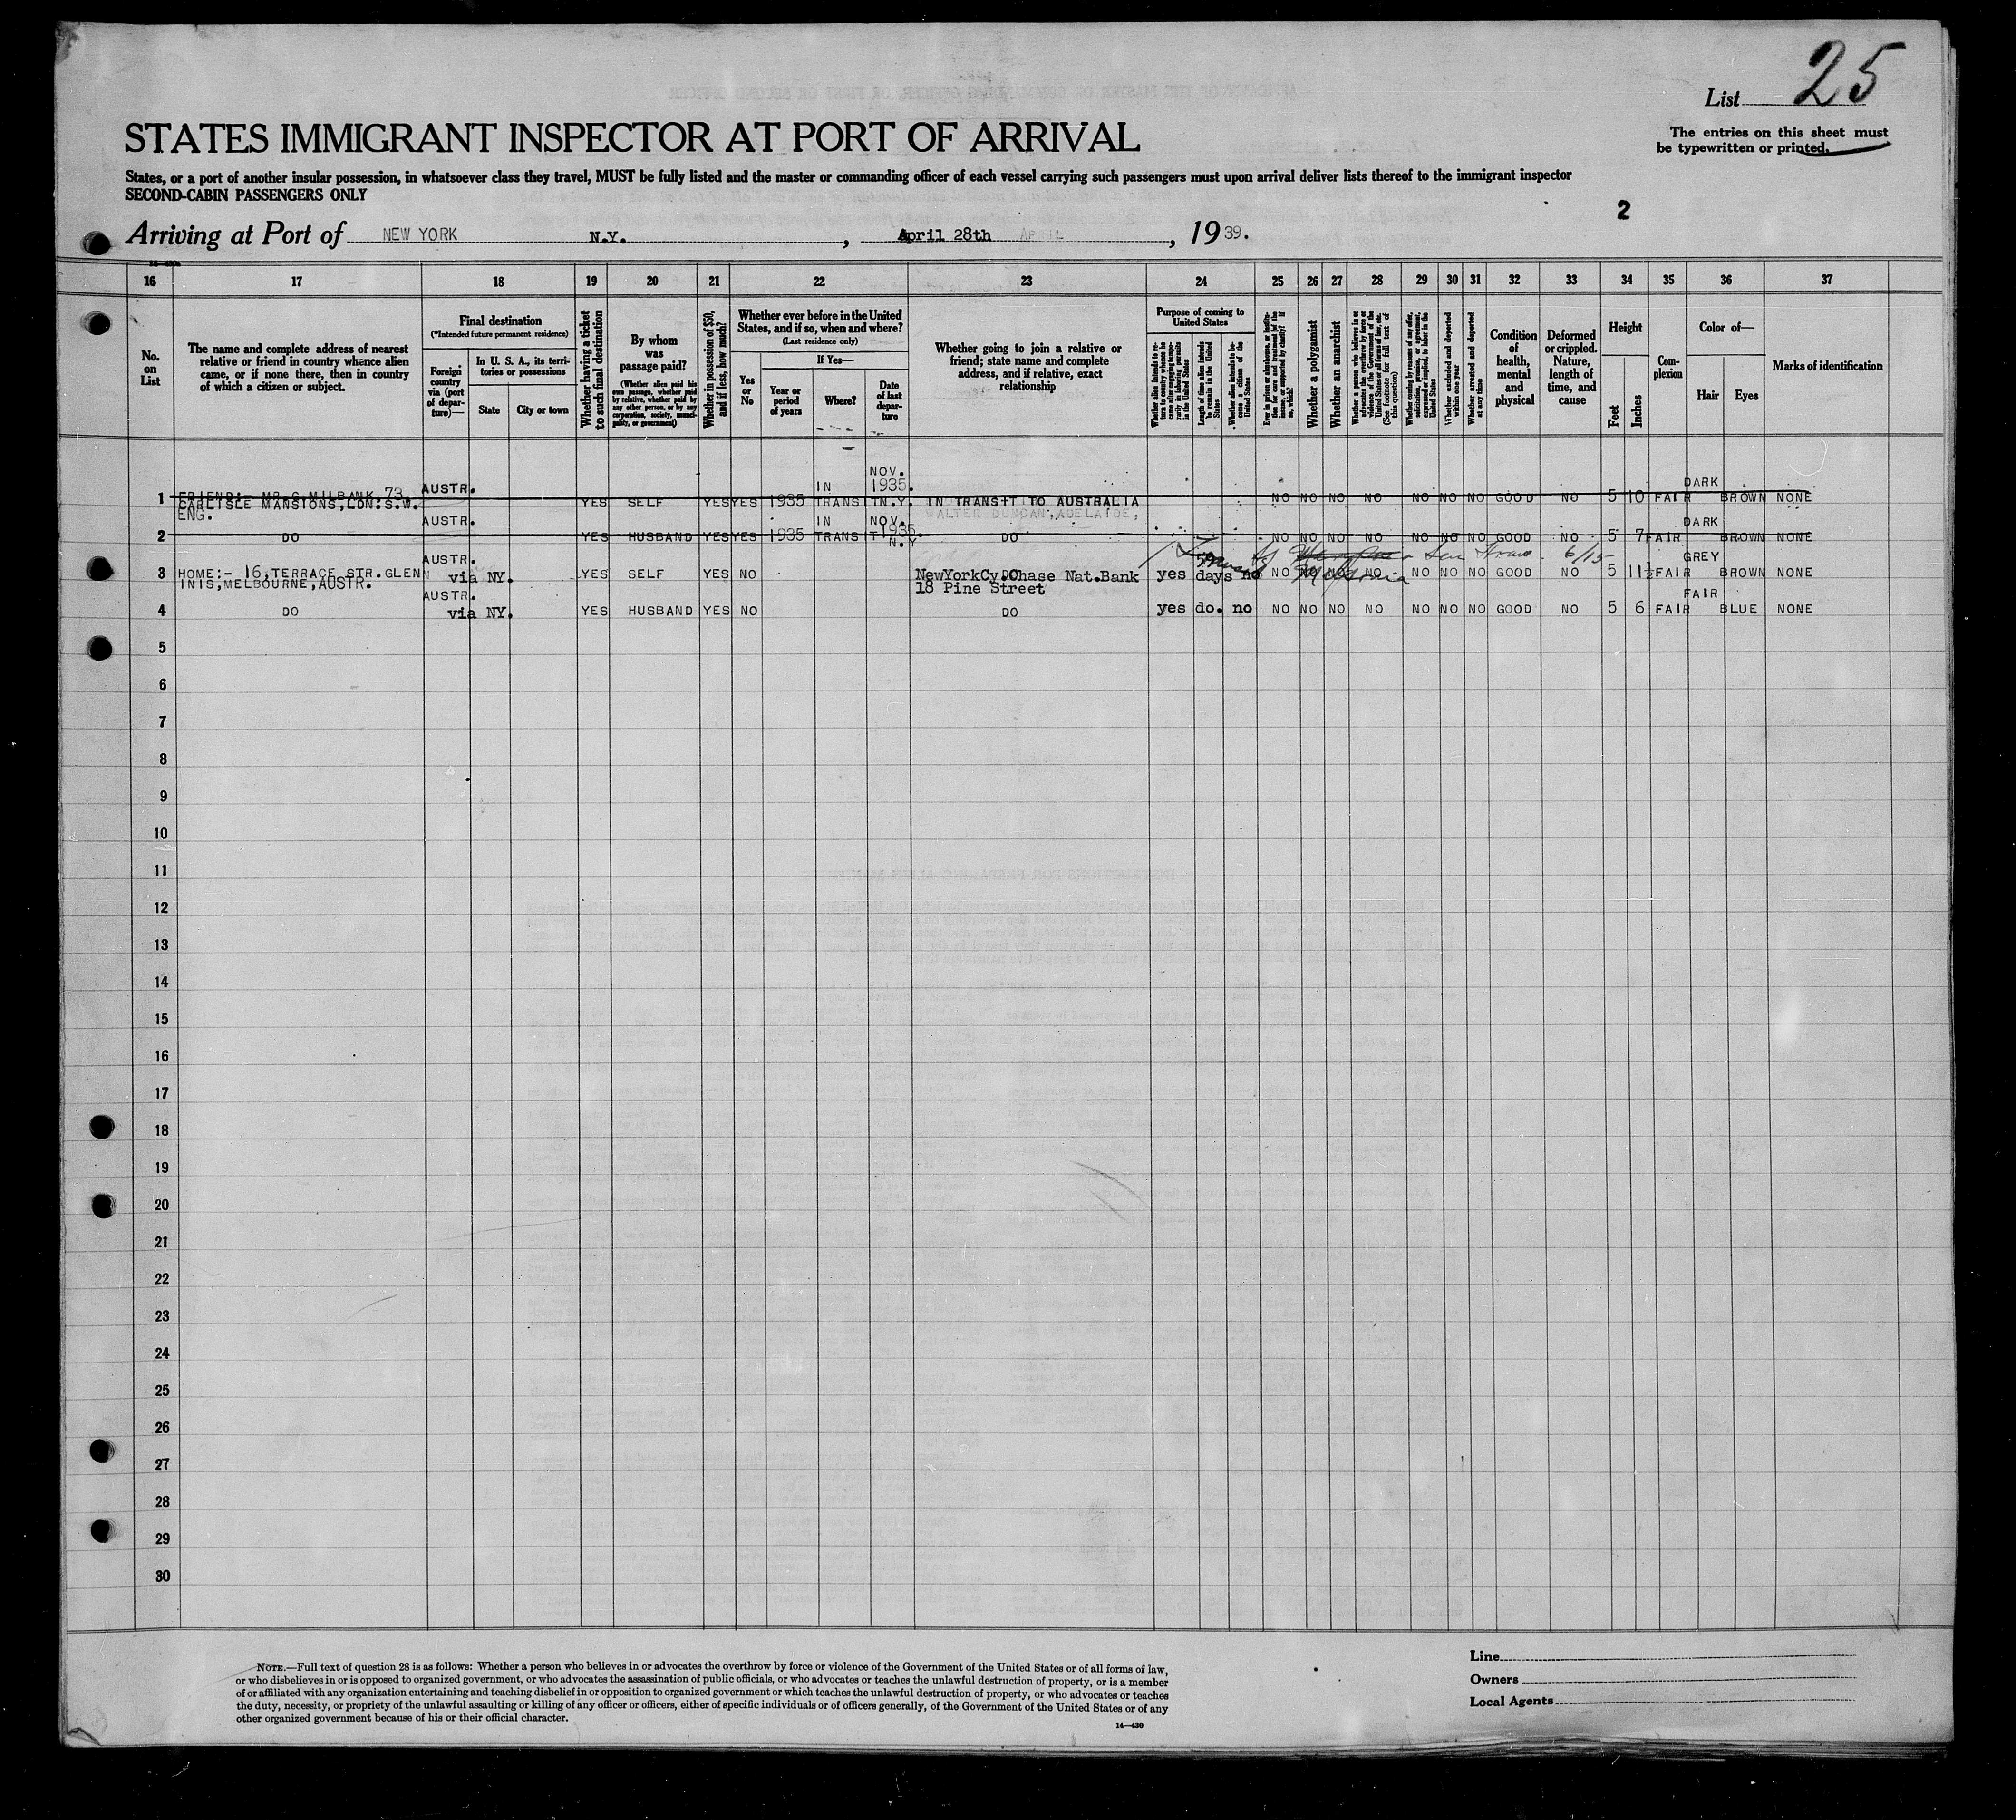 List 25
The entries on this sheet must
be typewritten or printed.
STATES IMMIGRANT INSPECTOR AT PORT OF ARRIVAL
States, or a port of another insular possession, in whatsoever class they travel, MUST be fully listed and the master or commanding officer of each vessel carrying such passengers must upon arrival deliver lists thereof to the immigrant inspector
SECOND-CABIN PASSENGERS ONLY
2
Arriving at Port of NEW YORK N.Y. , April 28th APRIL , 19 39.
16 17 18 19 20 21 22 23 24 25 26 27 28 29 30 31 32 33 34 35 36 37
No. on List
The name and complete address of nearest
relative or friend in country whence alien
came, or if none there, then in country
of which a citizen or subject.
Final destination
(*Intended future permanent residence)
Foreign country via (port of departure)—
In U. S. A., its territories or possessions
State
City or town
Whether having a ticket to such final destination
By whom was passage paid?
(Whether alien paid his own passage, whether paid by relative, whether paid by any other person, or by any corporation, society, municipality, or government)
Whether in possession of $50, and if less, how much?
Whether ever before in the United States, and if so, when and where?
(Last residence only)
Yes or No
If Yes—
Year or period of years
Where?
Date of last departure
Whether going to join a relative or
friend; state name and complete
address, and if relative, exact
relationship
Purpose of coming to United States
Whether alien intends to return to country whence he came after engaging temporarily in laboring pursuits in the United States
Length of time alien intends to remain in the United States
Whether alien intends to become a citizen of the United States
Ever in prison or almshouse, or institution for care and treatment of the insane, or supported by charity? If so, which?
Whether a polygamist
Whether an anarchist
Whether a person who believes in or advocates the overthrow by force or violence of the Government of the United States or all forms of law, etc. (See footnote for full text of this question)
Whether coming by reason of any offer, solicitation, promise, or agreement, expressed or implied, to labor in the United States
Whether excluded and deported within one year
Whether arrested and deported at any time
Condition of health, mental and physical
Deformed or crippled. Nature, length of time, and cause
Height
Feet
Inches
Complexion
Color of—
Hair
Eyes
Marks of identification
1 FRIEND:- MR G MILBANK, 73, AUSTR. IN NOV. 1935. DARK
CARLISLE MANSIONS, LDN. S.W. YES SELF YES YES 1935 TRANSIT N.Y. IN TRANSIT TO AUSTRALIA NO NO NO NO NO NO NO GOOD NO 5 10 FAIR BROWN NONE
ENG. WALTER DUNCAN, ADELAIDE,
AUSTR. IN NOV. 1935. DARK
2 DO YES HUSBAND YES YES 1935 TRANSIT N.Y DO NO NO NO NO NO NO NO GOOD NO 5 7 FAIR BROWN NONE
AUSTR. 6/15 GREY
3 HOME:- 16, TERRACE STR. GLEN via NY. YES SELF YES NO NewYorkCy. Chase Nat. Bank yes days no NO NO NO NO NO NO NO GOOD NO 5 11½ FAIR BROWN NONE
INIS, MELBOURNE, AUSTR. 18 Pine Street
AUSTR. FAIR
4 DO via NY. YES HUSBAND YES NO DO yes do. no NO NO NO NO NO NO NO GOOD NO 5 6 FAIR BLUE NONE
5
6
7
8
9
10
11
12
13
14
15
16
17
18
19
20
21
22
23
24
25
26
27
28
29
30
NOTE.—Full text of question 28 is as follows: Whether a person who believes in or advocates the overthrow by force or violence of the Government of the United States or of all forms of law,
or who disbelieves in or is opposed to organized government, or who advocates the assassination of public officials, or who advocates or teaches the unlawful destruction of property, or is a member
of or affiliated with any organization entertaining and teaching disbelief in or opposition to organized government or which teaches the unlawful destruction of property, or who advocates or teaches
the duty, necessity, or propriety of the unlawful assaulting or killing of any officer or officers, either of specific individuals or of officers generally, of the Government of the United States or of any
other organized government because of his or their official character.
14—430
Line
Owners
Local Agents